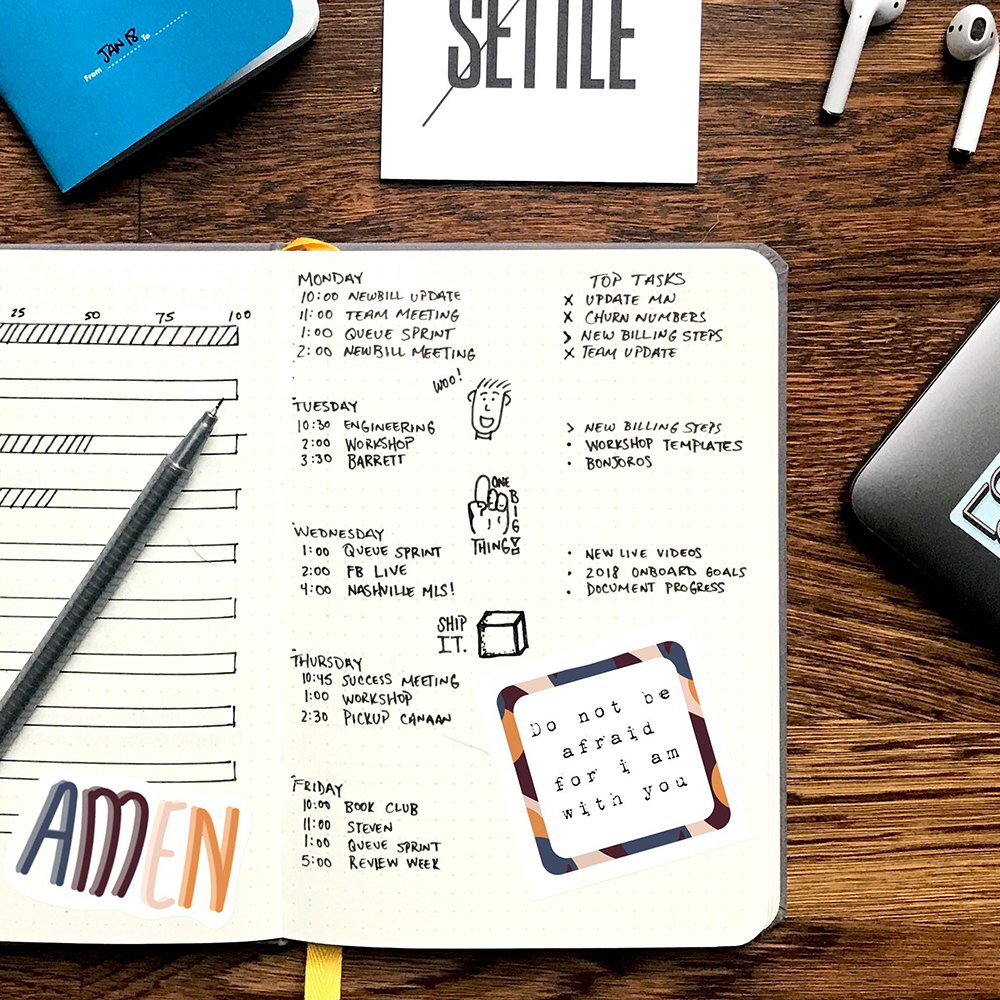 JAN 18
From To
SETTLE
25 50 75 100
MONDAY
10:00 NEWBILL UPDATE
11:00 TEAM MEETING
1:00 QUEUE SPRINT
2:00 NEWBILL MEETING
TOP TASKS
X UPDATE MN
X CHURN NUMBERS
> NEW BILLING STEPS
X TEAM UPDATE
WOO!
TUESDAY
10:30 ENGINEERING
2:00 WORKSHOP
3:30 BARRETT
> NEW BILLING STEPS
• WORKSHOP TEMPLATES
• BONJOROS
ONE
BIG
THING
WEDNESDAY
1:00 QUEUE SPRINT
2:00 FB LIVE
4:00 NASHVILLE MLS!
• NEW LIVE VIDEOS
• 2018 ONBOARD GOALS
• DOCUMENT PROGRESS
SHIP
IT.
THURSDAY
10:45 SUCCESS MEETING
1:00 WORKSHOP
2:30 PICKUP CANAAN
FRIDAY
10:00 BOOK CLUB
11:00 STEVEN
1:00 QUEUE SPRINT
5:00 REVIEW WEEK
Do not be
afraid
for i am
with you
AMEN